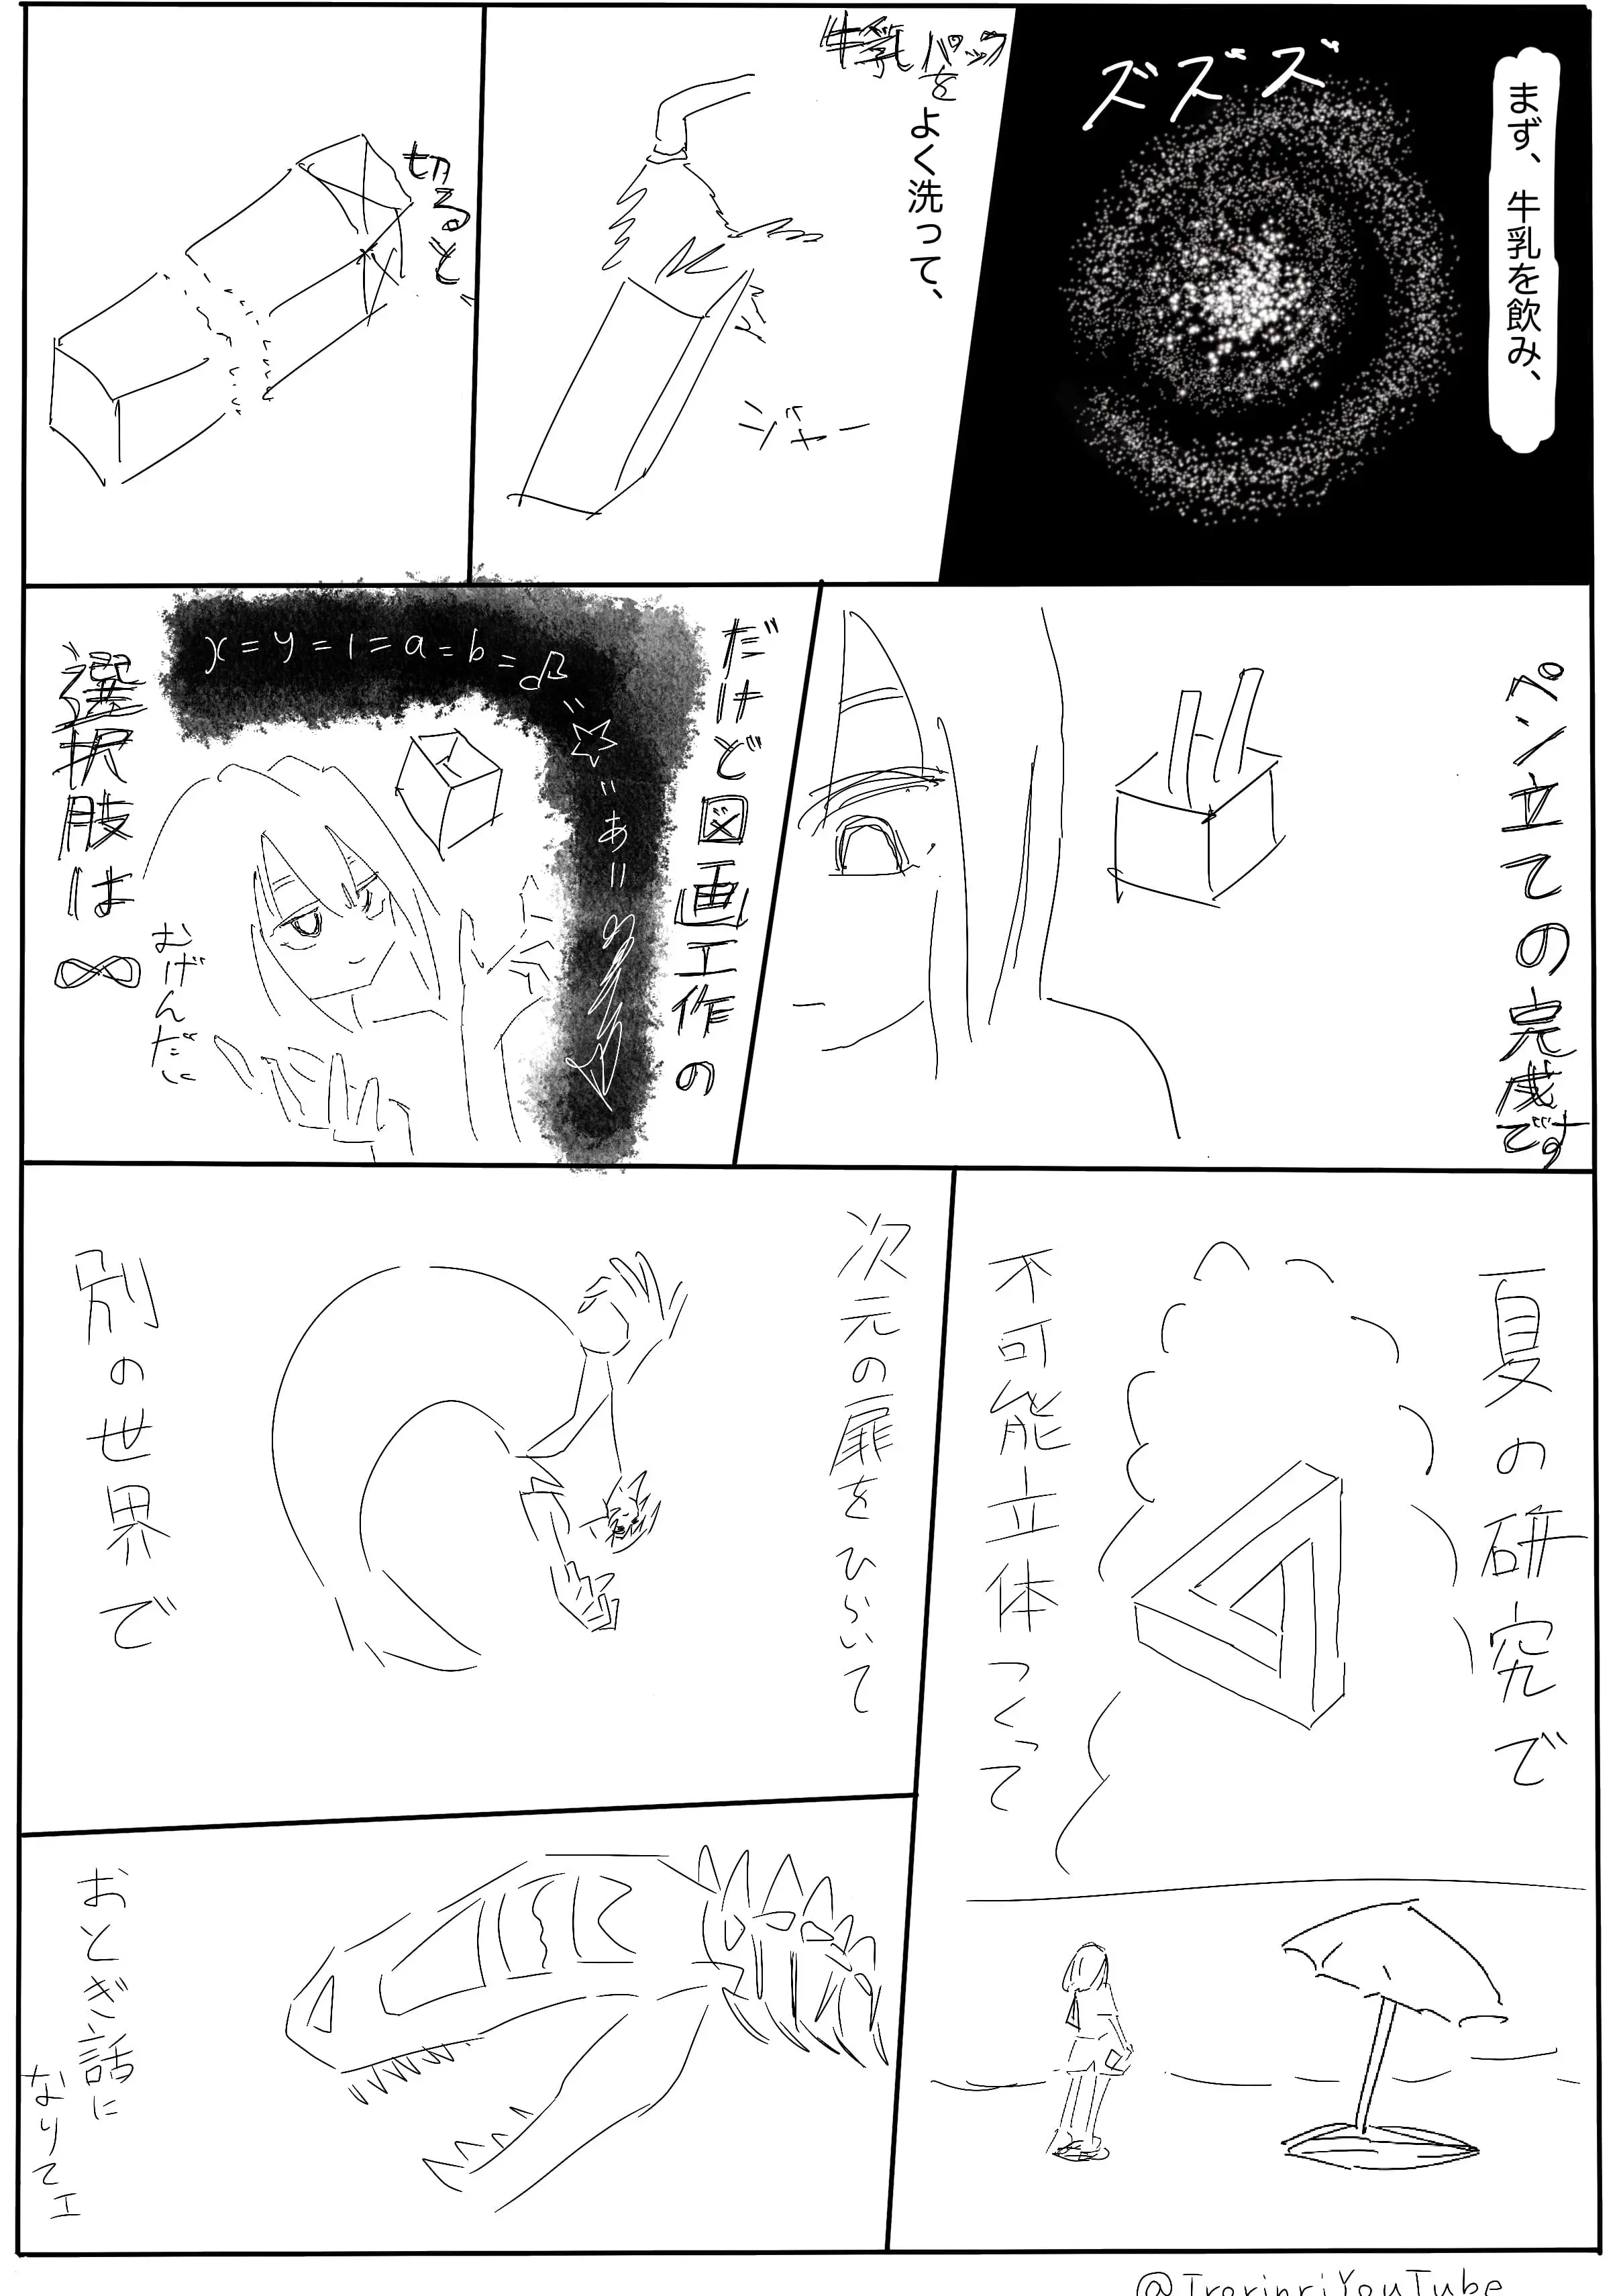 まず、牛乳を飲み、
ズズズ
牛乳パックを
よく洗って、
ジャー
切ると、
ペン立ての完成です
だけど図画工作の
x=y=1=a=b=♫=☆=あ=
選択肢は∞
おげんだい
夏の研究で
不可能立体つくって
次元の扉をひらいて
別の世界で
おとぎ話に
なりてエ